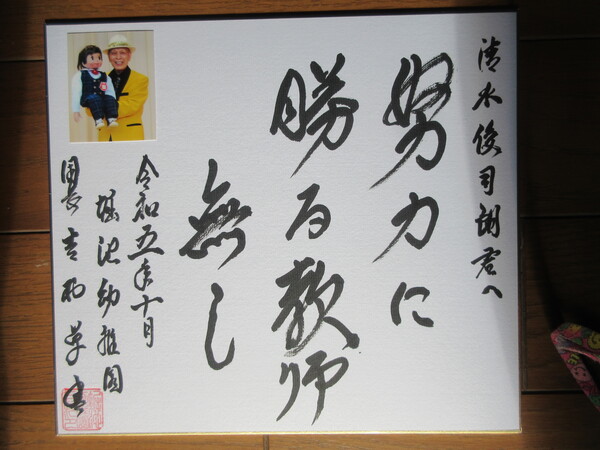 清水俊司朗君へ
努力に
勝る教師
無し
令和五年十月
堀池幼稚園
園長吉和幸